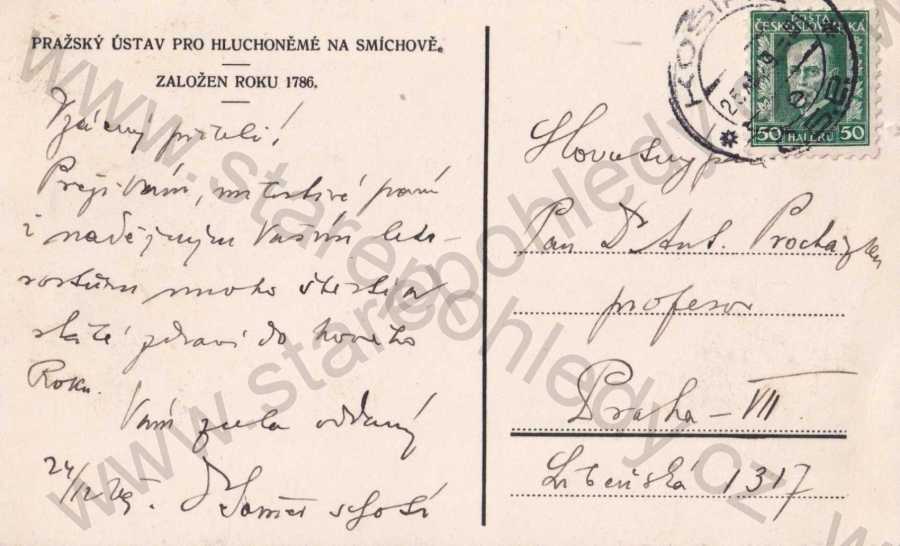 PRAŽSKÝ ÚSTAV PRO HLUCHONĚMÉ NA SMÍCHOVĚ.
ZALOŽEN ROKU 1786.
Vzácný příteli!
Přeji Vám, milostivé paní
i nadějným Vašim leto-
rostům mnoho štěstí a
stálé zdraví do Nového
Roku.
Vám zcela oddaný
24/12 29.
POŠTA
ČESKOSLOVENSKÁ
50 HALÉŘŮ 50
KOŠÍŘE
Slovutný pan
Pan Dr Ant. Procházka
profesor
Praha - VII
Libeňská 1317
www.starepohledy.cz
www.starepohledy.cz